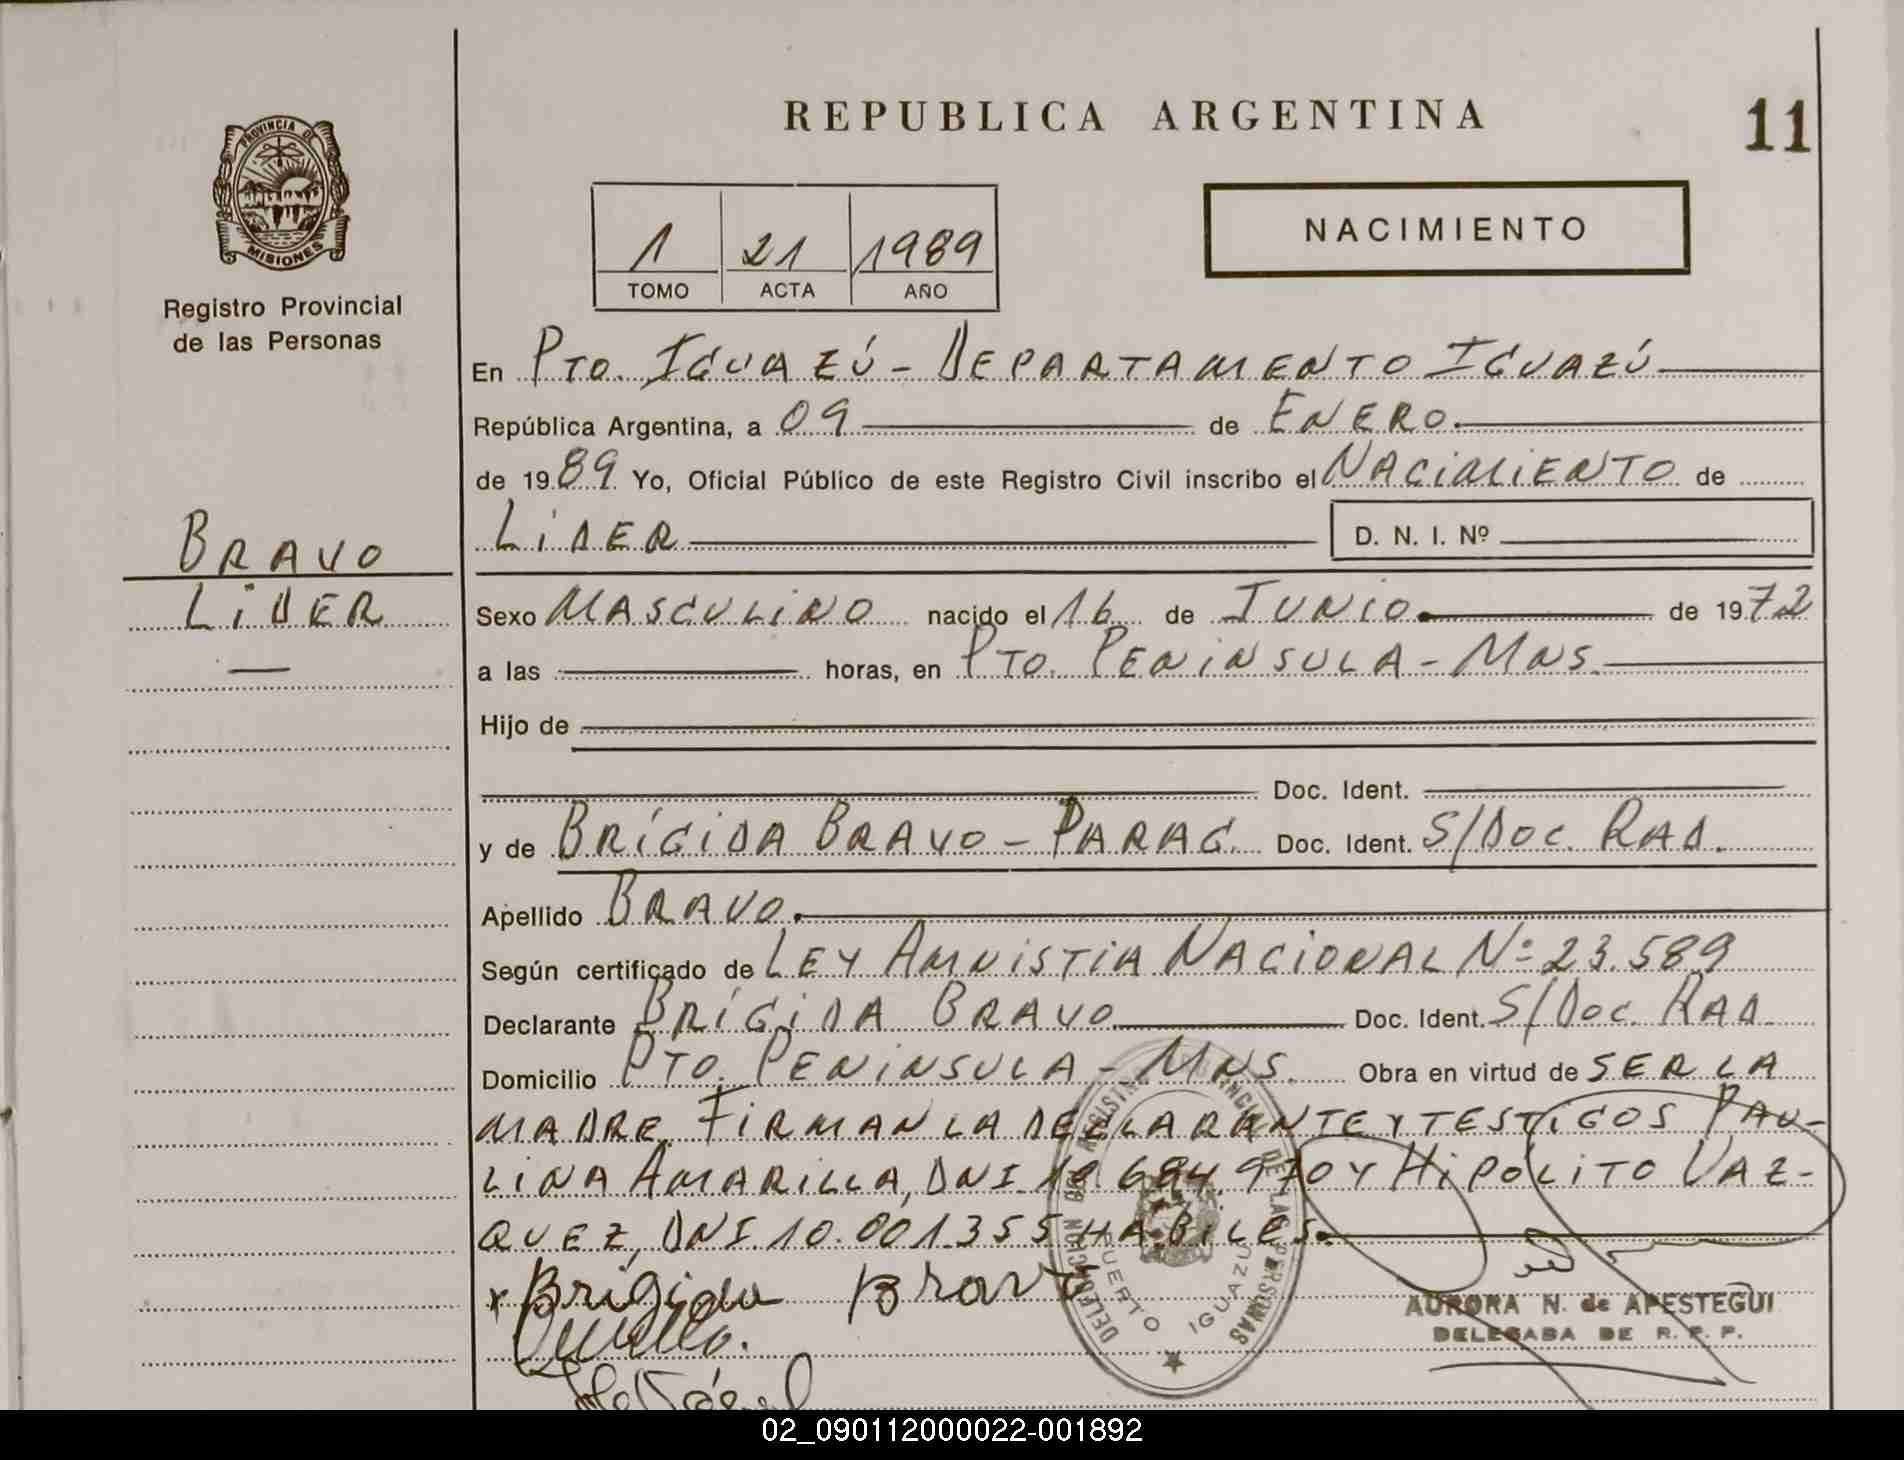 REPUBLICA ARGENTINA
11
PROVINCIA DE
MISIONES
Registro Provincial
de las Personas
1 21 1989
TOMO ACTA AÑO
NACIMIENTO
En PTO. IGUAZÚ - DEPARTAMENTO IGUAZÚ
República Argentina, a 09 de ENERO.
de 1989 Yo, Oficial Público de este Registro Civil inscribo el NACIMIENTO de
LIDER D. N. I. Nº
BRAVO
LIDER
Sexo MASCULINO nacido el 16 de JUNIO. de 1972
a las horas, en PTO. PENINSULA - MNS.
Hijo de
Doc. Ident.
y de BRÍGIDA BRAVO - PARAG. Doc. Ident. S/DOC. RAD.
Apellido BRAVO.
Según certificado de LEY AMNISTIA NACIONAL Nº 23.589
Declarante BRÍGIDA BRAVO Doc. Ident. S/DOC. RAD.
Domicilio PTO. PENINSULA - MNS. Obra en virtud de SER LA
MADRE. FIRMAN LA DECLARANTE Y TESTIGOS PAU-
LINA AMARILLA, DNI. 18.684.970 Y HIPOLITO VAZ-
QUEZ, DNI. 10.001.355 HABILES.
x Brígida Bravo
DELEGACION DEL REGISTRO PROVINCIAL DE LAS PERSONAS
PUERTO IGUAZU
AURORA N. de APESTEGUI
DELEGADA DE R. P. P.
02_090112000022-001892